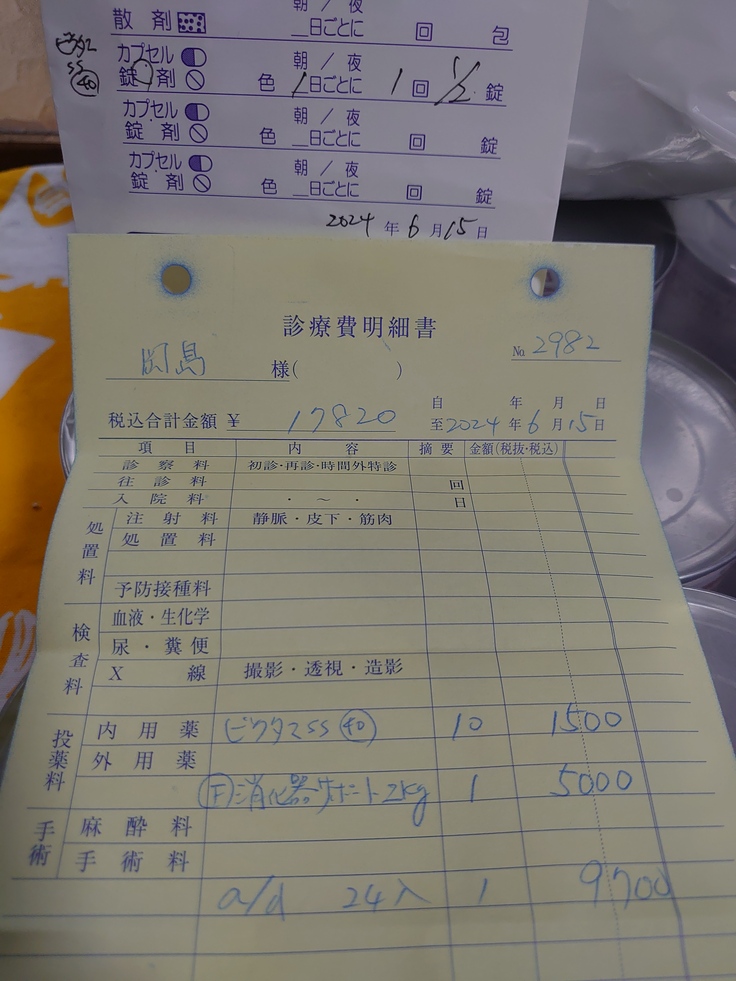 朝 / 夜
散 剤 __日ごとに 回 包
ビクタス
SS
㊵
カプセル 朝 / 夜
錠 剤 色 1日ごとに 1回 1/2 錠
カプセル 朝 / 夜
錠 剤 色 __日ごとに 回 錠
カプセル 朝 / 夜
錠 剤 色 __日ごとに 回 錠
2024 年 6 月 15 日
診療費明細書
様( ) № 2982
自 年 月 日
税込合計金額 ¥ 17820 至 2024 年 6 月 15 日
項 目 内 容 摘 要 金額(税抜・税込)
診 察 料 初診・再診・時間外特診
往 診 料 回
入 院 料 ・ ~ ・ 日
処置料 注 射 料 静脈・皮下・筋肉
処 置 料
予防接種料
検査料 血液・生化学
尿 ・ 糞 便
X 線 撮影・透視・造影
投薬料 内 用 薬 ビクタスSS ㊵ 10 1500
外 用 薬
Ⓕ消化器サポート2kg 1 5000
手術 麻 酔 料
手 術 料
a/d 24入 1 9700